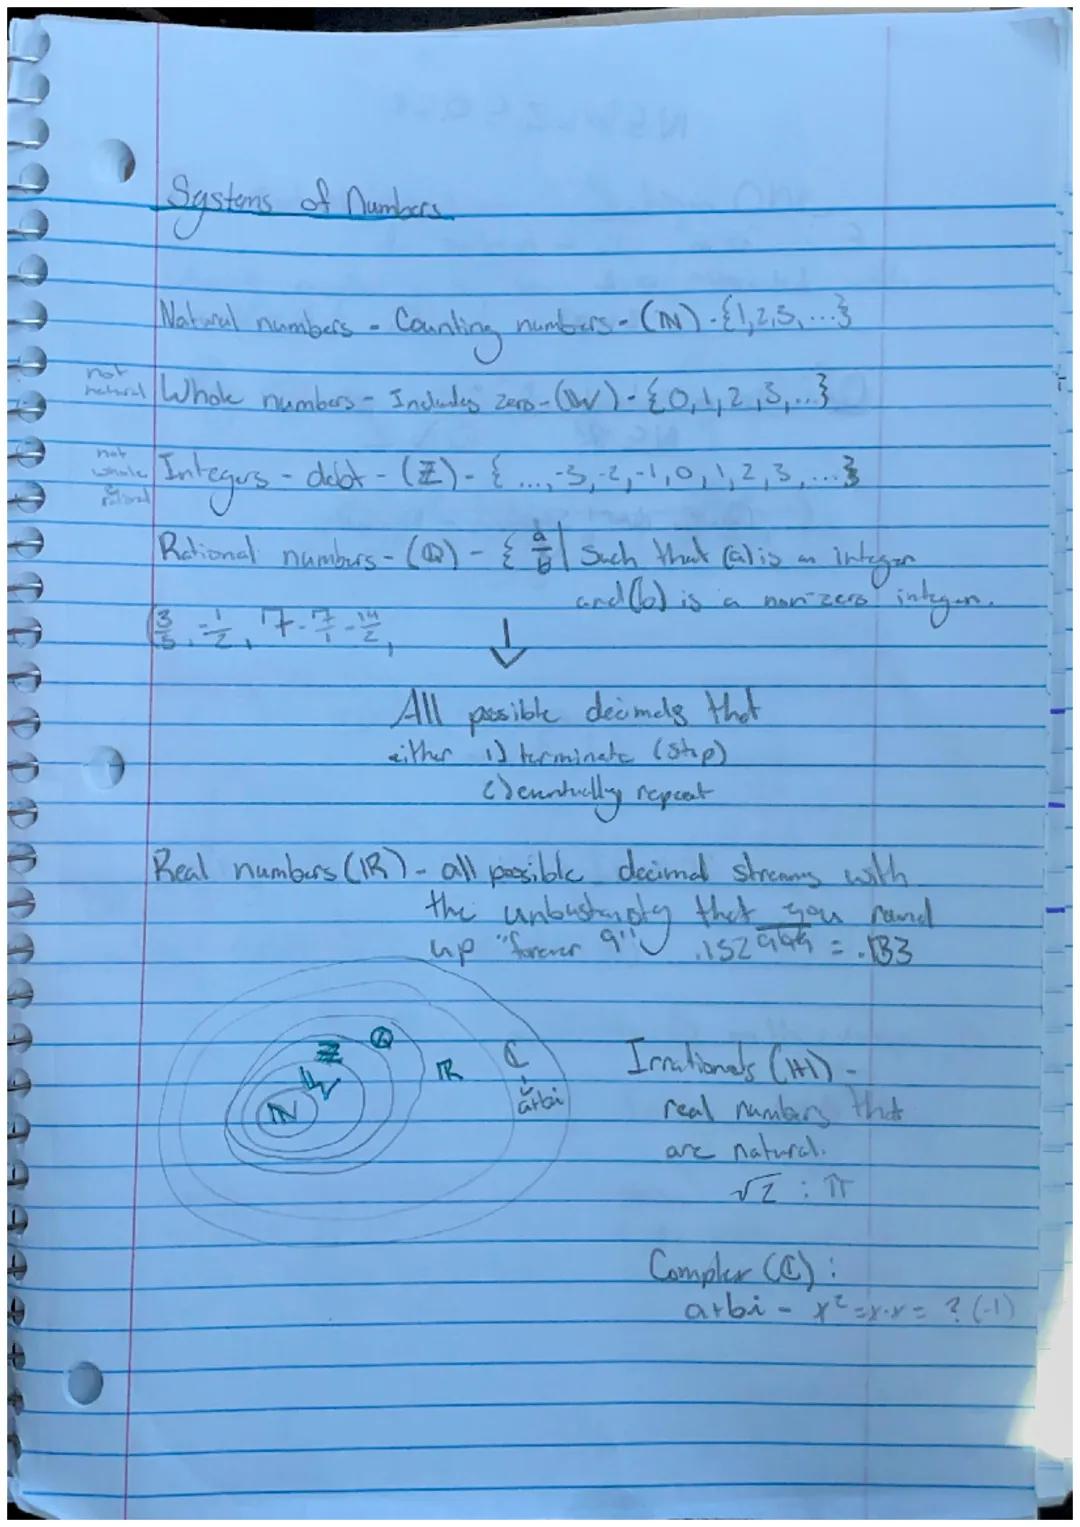 Systems of Numbers
Natural numbers - Counting numbers - (ℕ) - {1,2,3,...}
not
natural
Whole numbers - Includes zero - (𝕎) - {0,1,2,3,...}
not
whole
Integers - debt - (ℤ) - {...,-3,-2,-1,0,1,2,3,...}
Rational numbers - (ℚ) - { a/b | Such that (a) is an integer
and (b) is a non-zero integer.
3/5, -1/2, 7 - 7/1 - 14/2,
↓
All possible decimals that
either 1) terminate (stop)
2) eventually repeat
Real numbers (ℝ) - all possible decimal streams with
the that you round
up "forever 9" .152999 = .153
ℕ
𝕎
ℤ
ℚ
ℝ
ℂ
a+bi
Irrationals (ℍ) -
real numbers that
are natural.
√2 : π
Complex (ℂ) :
a+bi - x²=x·x= ? (-1)